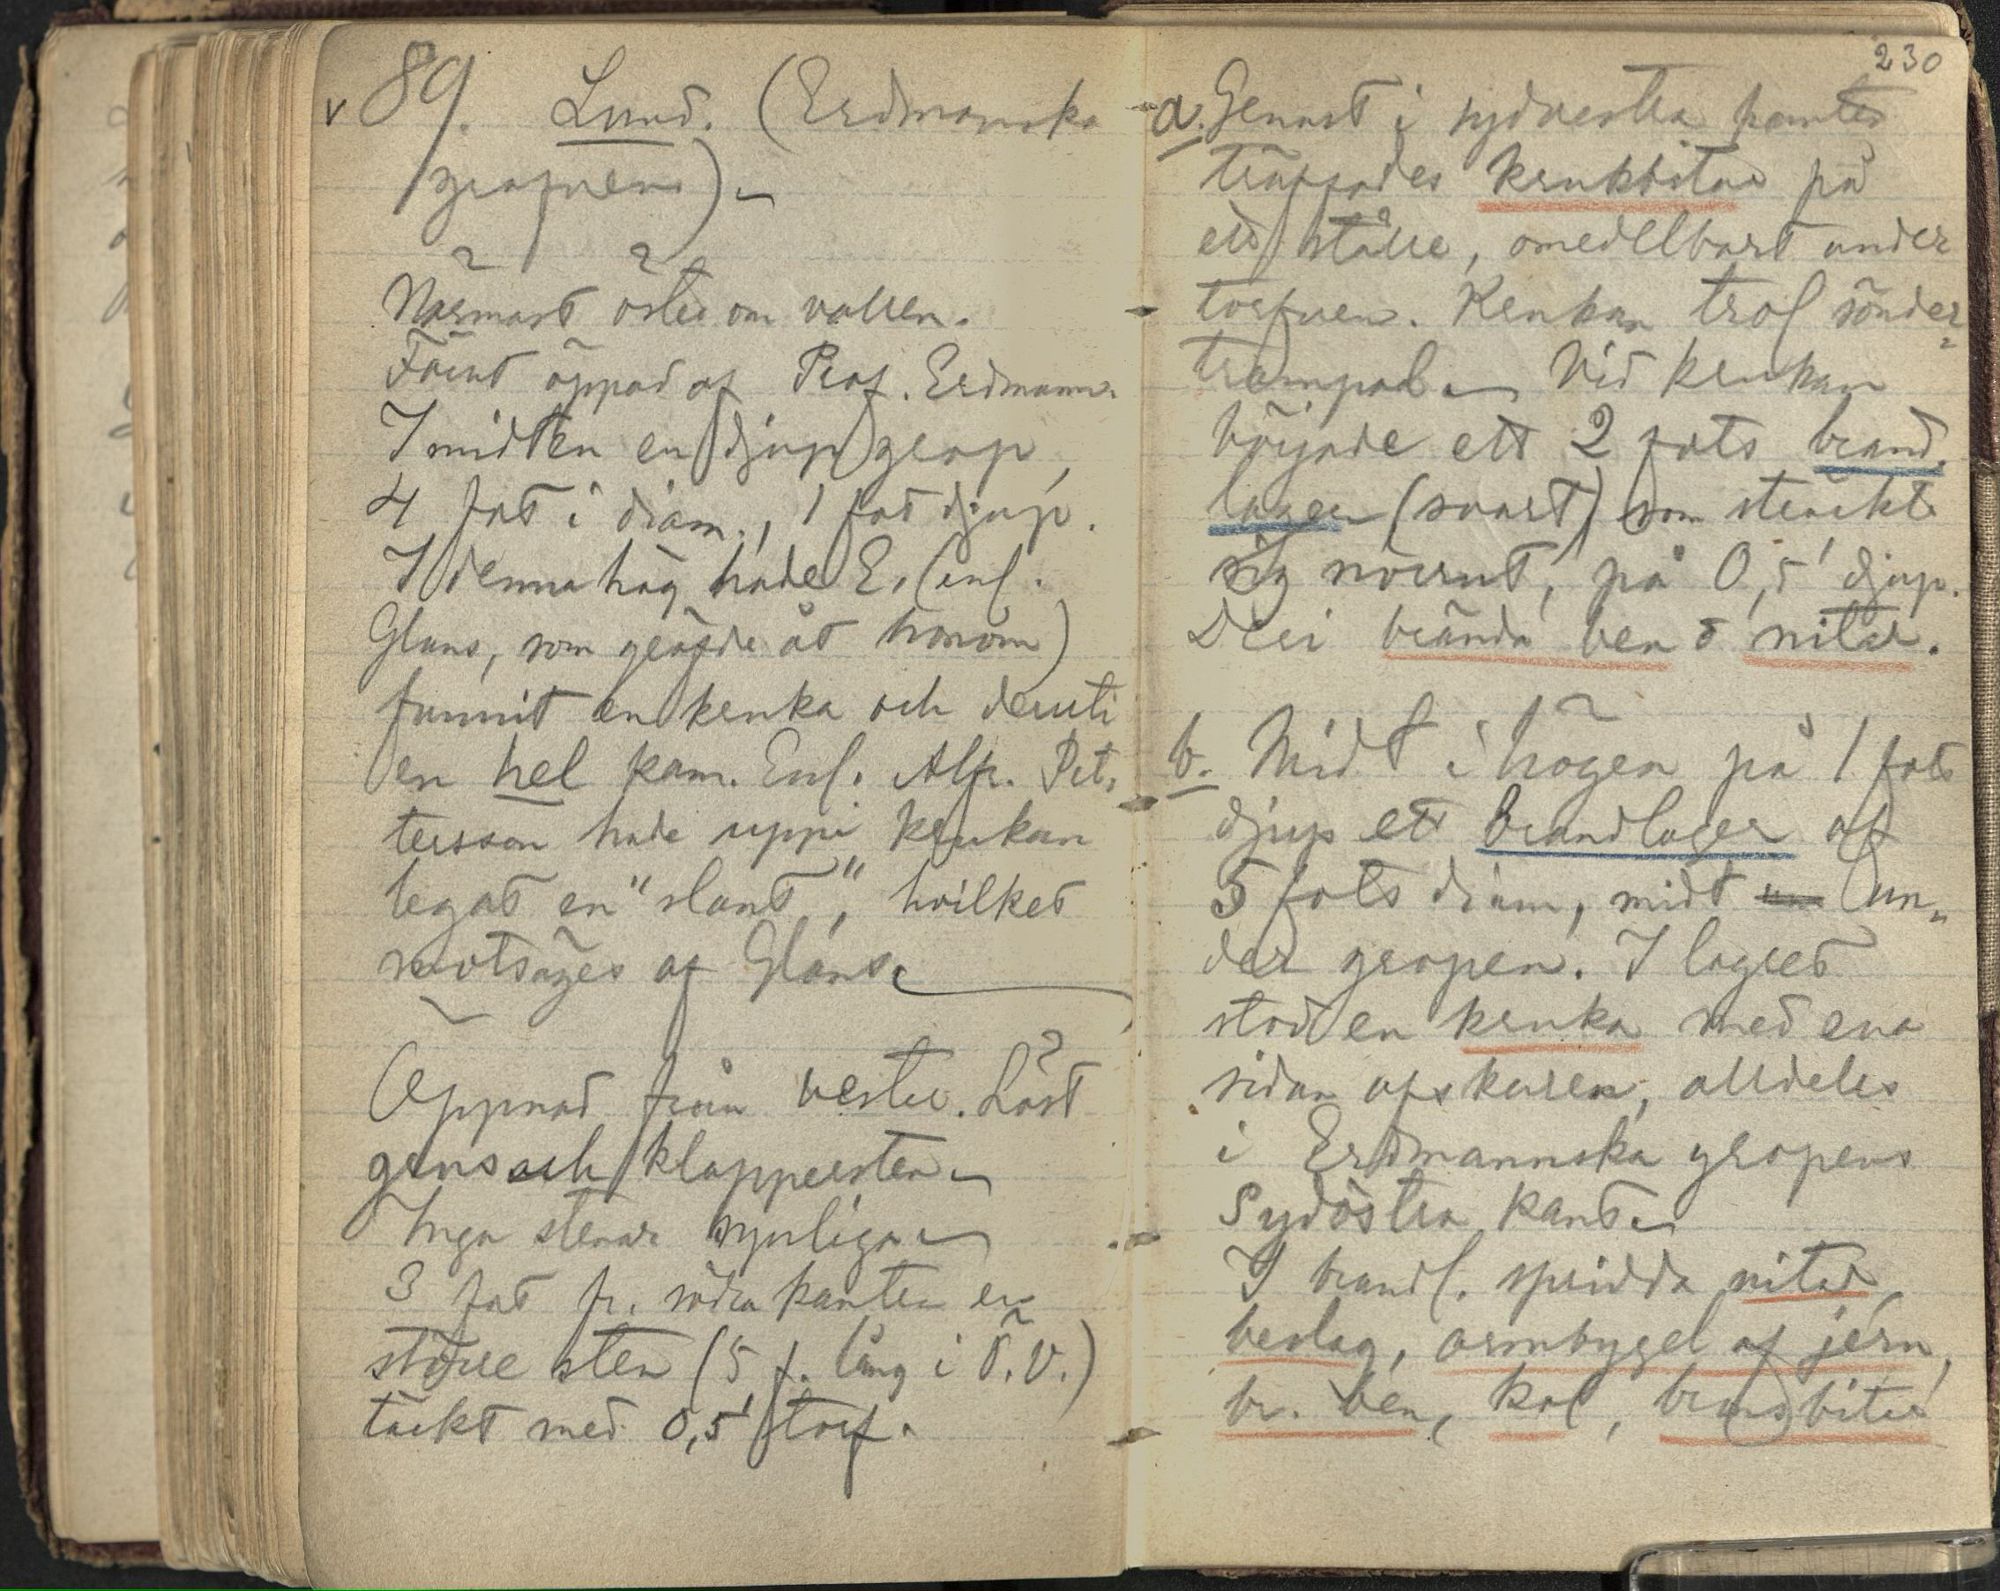 v 89. Lund. (Erdmanska
gropen)
Närmast öster om vallen.
Förut öppad af Prof. Erdmann.
I midten en djup grop,
4 fot i diam., 1 fot djup.
I denna hög hade E. (enl.
Glans, som gräfde åt honom)
funnit en kruka och deruti
en hel kam. Enl. Alfr. Pet-
tersson hade uppi krukan
legat en "slant", hvilket
motsäges af Glans.
Öppnad från vester. Löst
grus och klappersten
Inga stenar synliga
3 fot fr. södra kanten en
större sten (5 f. lång i Ö.V.)
täckt med 0,5' torf.
230
a. Genast i sydvestra kanten
träffades krukbitar på
ett ställe, omedelbart under
torfven. Krukan trol sönder-
trampad. Vid krukan
började ett 2 fots brand-
lager (svart) som sträckte
sig norrut, på 0,5' djup.
Deri brända ben o nitar.
b. Midt i högen på 1 fots
djup ett brandlager af
5 fots diam, midt un-
der gropen. I lagret
stod en kruka med ena
sidan afskuren, alldeles
i Erdmannska gropens
Sydöstra kant.
I brandl. spridda nitar,
beslag, armbygel af jern,
br. ben, kol, brödbitar